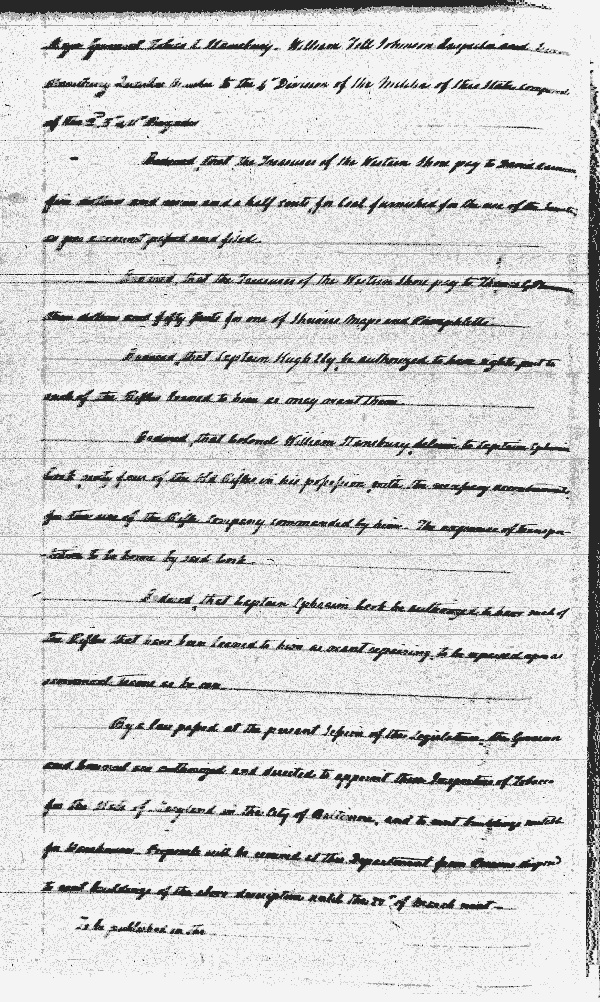 Major General Tobias E. Stansbury. William Tell Johnson Inspector and
to the 6th Division of the Militia of this State
of the 2d 5th & 11th Brigades
Ordered, that the Treasurer of the Western Shore pay to David
five dollars and and a half cents for Coal furnished for the use of the
as per account passed and filed.
Ordered, that the Treasurer of the Western Shore pay to Thomas
three dollars and fifty Cents for one of Shrivers Maps and Pamphletts
Ordered, that Captain Hugh Ely be authorized to have put to
each of the Rifles loaned to him as may want them
Ordered, that Colonel William Stansbury deliver to Captain Ephraim
Cook sixty four of the Rifles in his possession with the necessary accoutrements
for the use of the Rifle Company commanded by him. The expenses of transpor-
-tation to be borne by said Cook
Ordered, that Captain Ephraim Cook be authorized to have such of
the Rifles that have been loaned to him as want repairing, to be repaired upon as
terms as he can
By a law passed at the present Session of the Legislature, the Governor
and Council are authorized and directed to appoint three Inspectors of Tobacco
for the State of Maryland in the City of Baltimore, and to rent buildings suitable
for Warehouses. Proposals will be received at this Department from Persons disposed
to rent buildings of the above description until the of March next
To be published in the